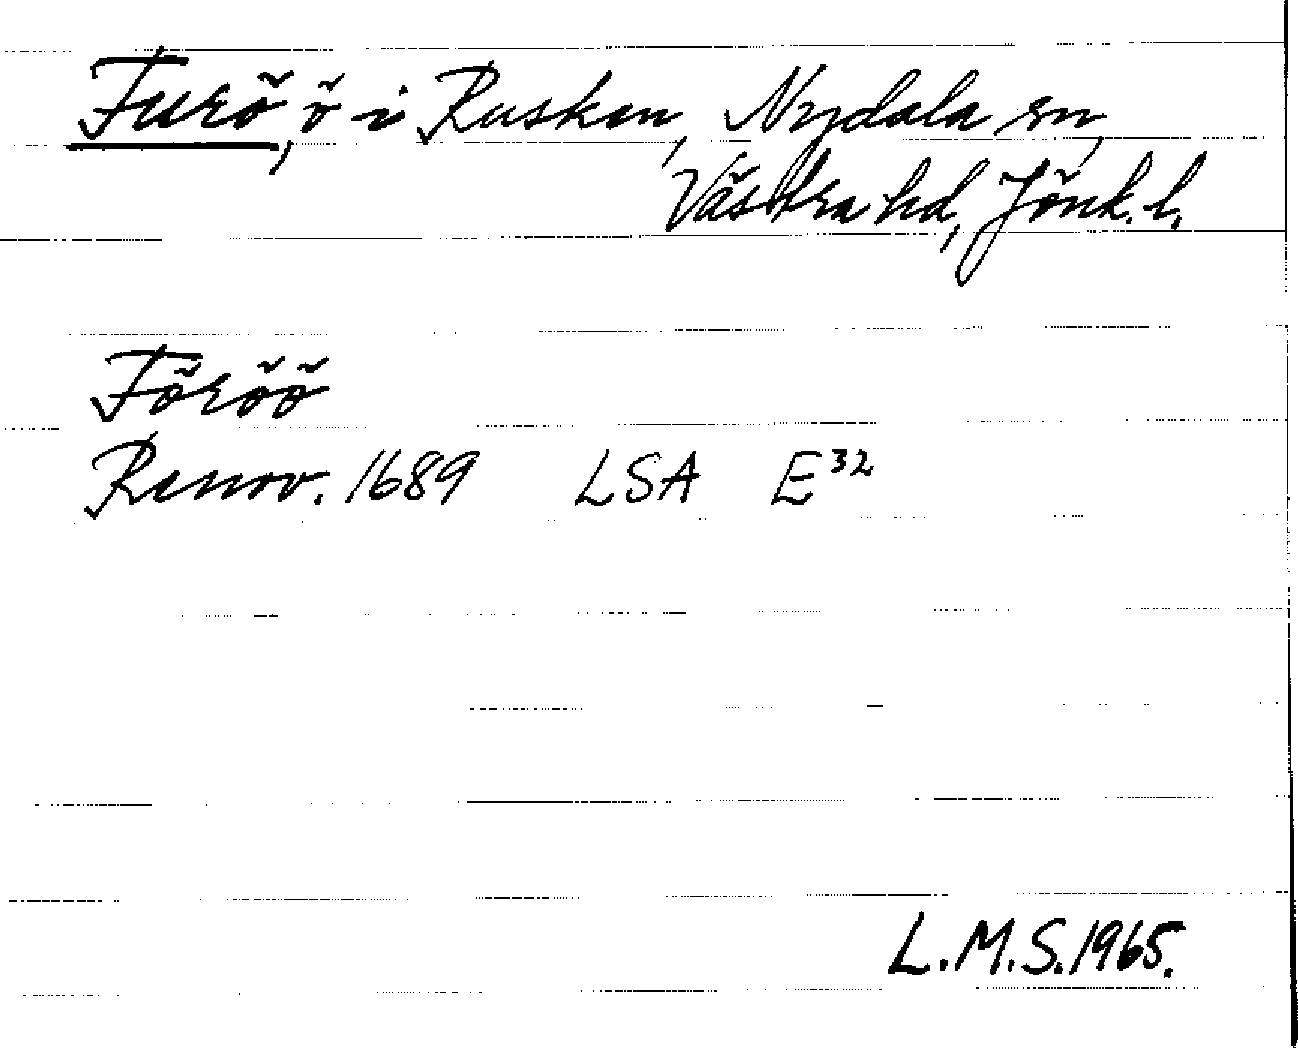 Furö, ö i Rusken, Nydala sn,
Västra hd, Jönk. l.
Föröö
Renov. 1689 LSA E³²
L.M.S. 1965.